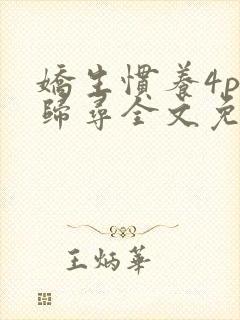 嬌生慣養4p
歸尋全文免
王炳華